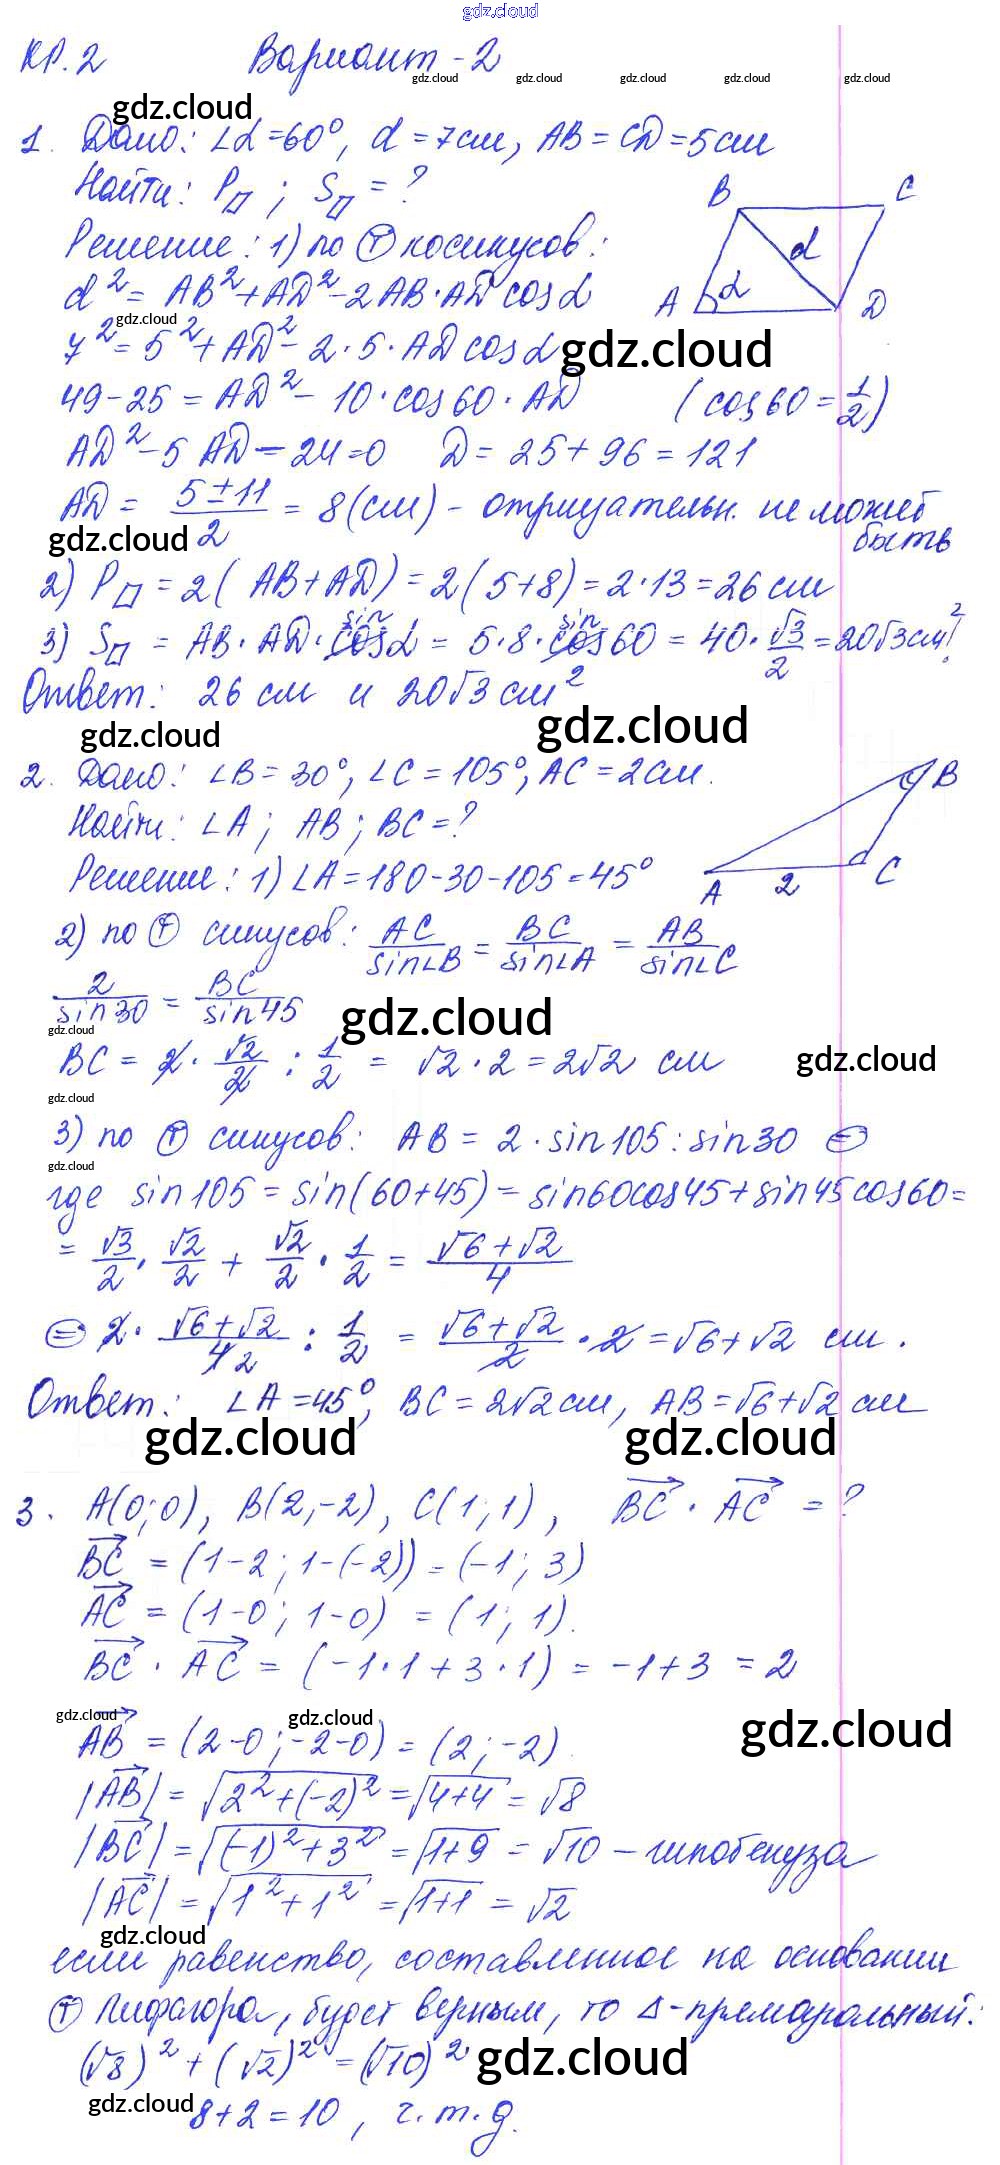 gdz.cloud
КР.2 Вариант - 2
gdz.cloud gdz.cloud gdz.cloud gdz.cloud gdz.cloud
gdz.cloud
1. Дано: ∠α = 60°, d = 7см, AB = CD = 5см
Найти: P▱ ; S▱ = ?
B C
Решение: 1) по Ⓣ косинусов:
d
d² = AB² + AD² - 2AB·AD cosα
A α D
gdz.cloud
7² = 5² + AD² - 2·5·AD cosα
gdz.cloud
49 - 25 = AD² - 10·cos60·AD (cos60 = 1/2)
AD² - 5AD - 24 = 0 D = 25 + 96 = 121
AD = (5 ± 11)/2 = 8 (см) - отрицательн. не может быть
gdz.cloud
2) P▱ = 2(AB + AD) = 2(5 + 8) = 2·13 = 26 см
3) S▱ = AB·AD· sin cosα = 5·8· sin cos60 = 40·√3/2 = 20√3см²!
Ответ: 26 см и 20√3 см²
gdz.cloud gdz.cloud
2. Дано: ∠B = 30°, ∠C = 105°, AC = 2см.
B
Найти: ∠A ; AB ; BC = ?
Решение: 1) ∠A = 180 - 30 - 105 = 45°
A 2 C
2) по Ⓣ синусов: AC/sin∠B = BC/sin∠A = AB/sin∠C
2/sin30 = BC/sin45
gdz.cloud gdz.cloud
BC = 2·√2/2 : 1/2 = √2·2 = 2√2 см
gdz.cloud
gdz.cloud
3) по Ⓣ синусов: AB = 2·sin105 : sin30 ⊜
gdz.cloud
где sin105 = sin(60+45) = sin60cos45 + sin45cos60 =
= √3/2·√2/2 + √2/2·1/2 = (√6 + √2)/4
⊜ 2·(√6 + √2)/4 2 : 1/2 = (√6 + √2)/2·2 = √6 + √2 см.
Ответ: ∠A = 45°, BC = 2√2см, AB = √6 + √2 см
gdz.cloud gdz.cloud
3. A(0;0), B(2;-2), C(1;1), BC · AC = ?
BC = (1-2; 1-(-2)) = (-1; 3)
AC = (1-0; 1-0) = (1; 1).
BC · AC = (-1·1 + 3·1) = -1 + 3 = 2
gdz.cloud gdz.cloud gdz.cloud
AB = (2-0; -2-0) = (2; -2).
|AB| = √(2² + (-2)²) = √(4+4) = √8
|BC| = √((-1)² + 3²) = √(1+9) = √10 - гипотенуза
|AC| = √(1² + 1²) = √(1+1) = √2
gdz.cloud
если равенство, составленное на основании
Ⓣ Пифагора, будет верным, то Δ-прямоугольный:
(√8)² + (√2)² = (√10)²
gdz.cloud
gdz.cloud
8 + 2 = 10, ч.т.д.